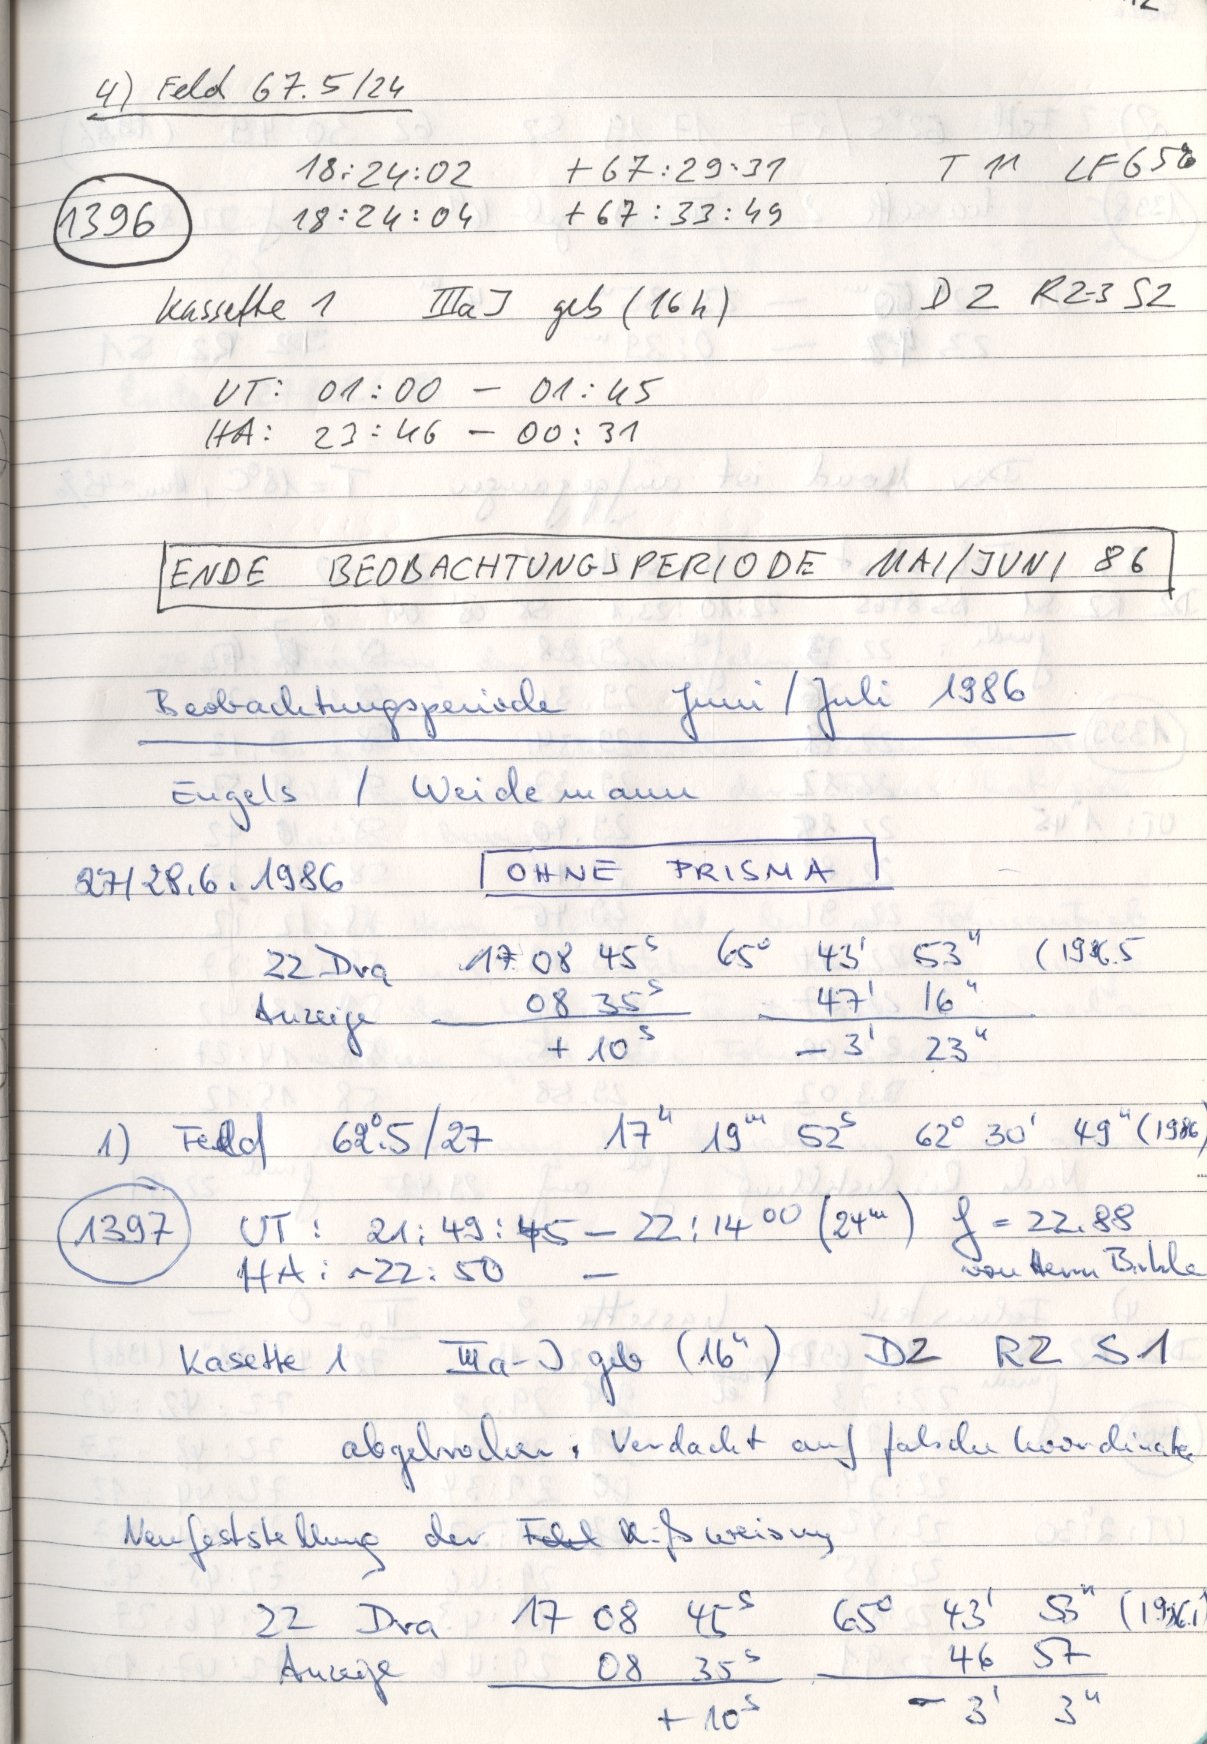 4) Feld 67.5/24
18:24:02 +67:29:31 T 11 LF65%
1396 18:24:04 +67:33:49
Kassette 1 IIIaJ geb (16h) D2 R2-3 S2
UT: 01:00 – 01:45
HA: 23:46 – 00:31
ENDE BEOBACHTUNGSPERIODE MAI/JUNI 86
Beobachtungsperiode Juni / Juli 1986
Engels / Weidemann
27/28.6.1986 OHNE PRISMA
22 Dra 17 08 45s 65° 43' 53" (1986.5
Anzeige 08 35s 47' 16"
+ 10s – 3' 23"
1) Feld 62°.5/27 17h 19m 52s 62° 30' 49" (1986)
1397 UT: 21:49:45 – 22:14 00 (24m) f = 22.88
HA: ~22:50 – von Herrn Birkle
Kasette 1 IIIa-J geb (16h) D2 R2 S1
abgebrochen, Verdacht auf falsche Koordinaten
Neufeststellung der
22 Dra 17 08 45s 65° 43' 53" (1986.
Anzeige 08 35s 46 57
+ 10s – 3' 3"